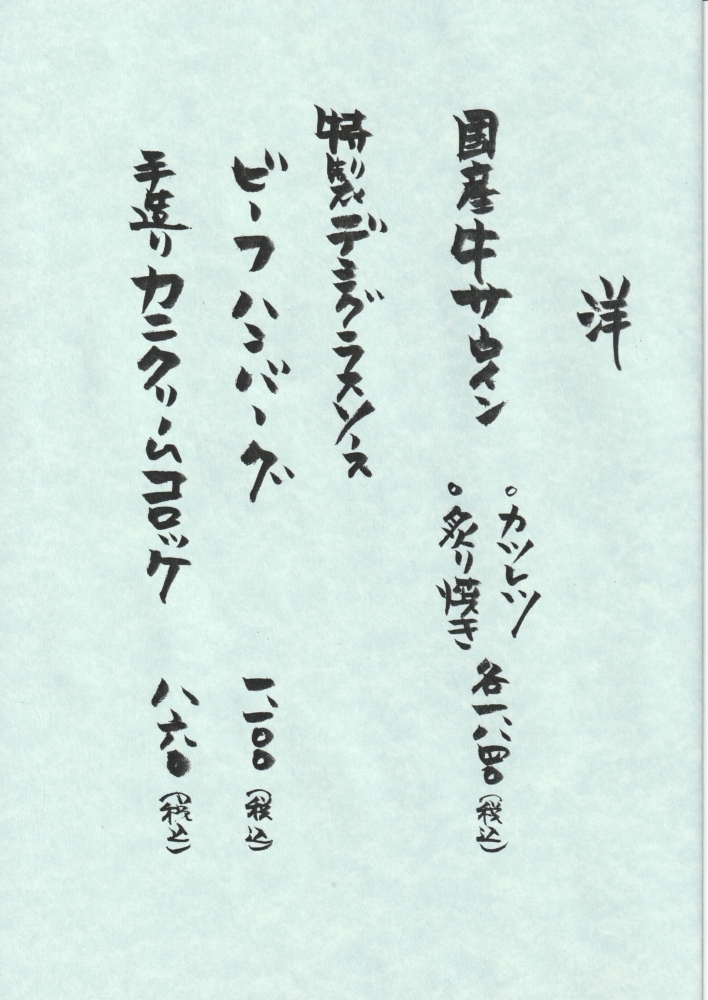 洋
国産牛サーロイン
。カツレツ
。炙り焼き
各一、八四〇(税込)
特製デミグラスソース
ビーフハンバーグ
一、一〇〇(税込)
手造りカニクリームコロッケ
八六〇(税込)